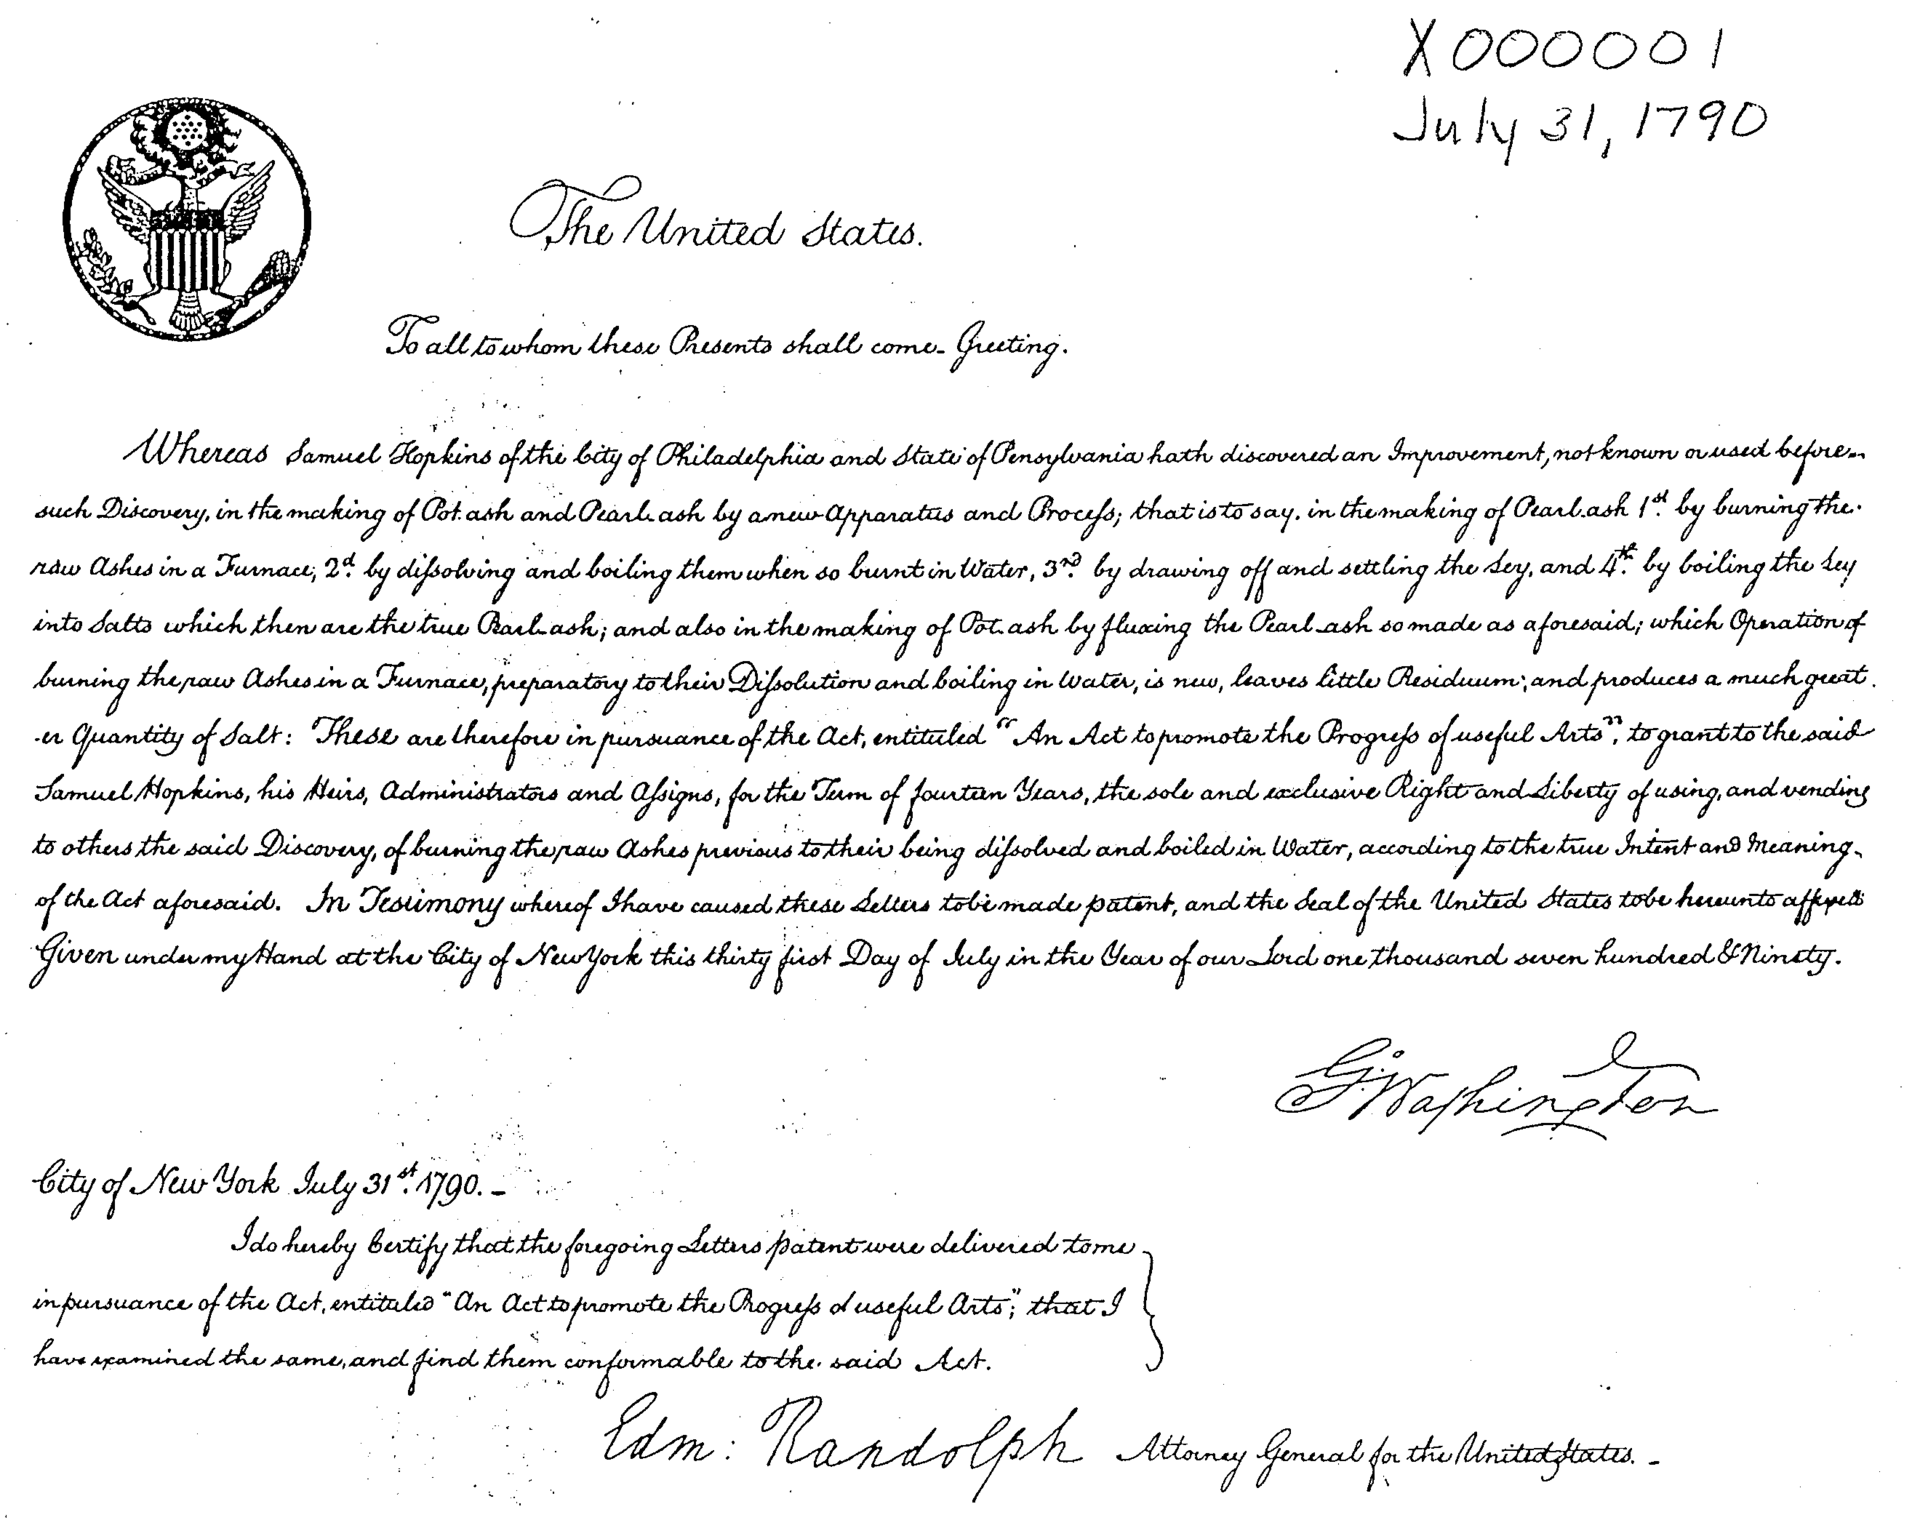 X000001
July 31, 1790
The United States.
To all to whom these Presents shall come. Greeting.
Whereas Samuel Hopkins of the City of Philadelphia and State of Pensylvania hath discovered an Improvement, not known or used before
such Discovery, in the making of Pot ash and Pearl ash by a new Apparatus and Process; that is to say, in the making of Pearl ash 1st. by burning the
raw Ashes in a Furnace, 2d. by dissolving and boiling them when so burnt in Water, 3rd. by drawing off and settling the Ley, and 4th. by boiling the Ley
into Salts which then are the true Pearl ash; and also in the making of Pot ash by fluxing the Pearl ash so made as aforesaid; which Operation of
burning the raw Ashes in a Furnace, preparatory to their Dissolution and boiling in Water, is new, leaves little Residuum; and produces a much great
-er Quantity of Salt: These are therefore in pursuance of the Act, entituled "An Act to promote the Progress of useful Arts", to grant to the said
Samuel Hopkins, his Heirs, Administrators and Assigns, for the Term of fourteen Years, the sole and exclusive Right and Liberty of using, and vending
to others the said Discovery, of burning the raw Ashes previous to their being dissolved and boiled in Water, according to the true Intent and Meaning
of the Act aforesaid. In Testimony whereof I have caused these Letters to be made patent, and the Seal of the United States to be hereunto affixed
Given under my Hand at the City of New York this thirty first Day of July in the Year of our Lord one thousand seven hundred & Ninety.
G. Washington
City of New York July 31st. 1790. -
I do hereby Certify that the foregoing Letters patent were delivered to me
in pursuance of the Act, entituled "An Act to promote the Progress of useful Arts"; that I
have examined the same, and find them conformable to the said Act.
Edm: Randolph Attorney General for the United States. -